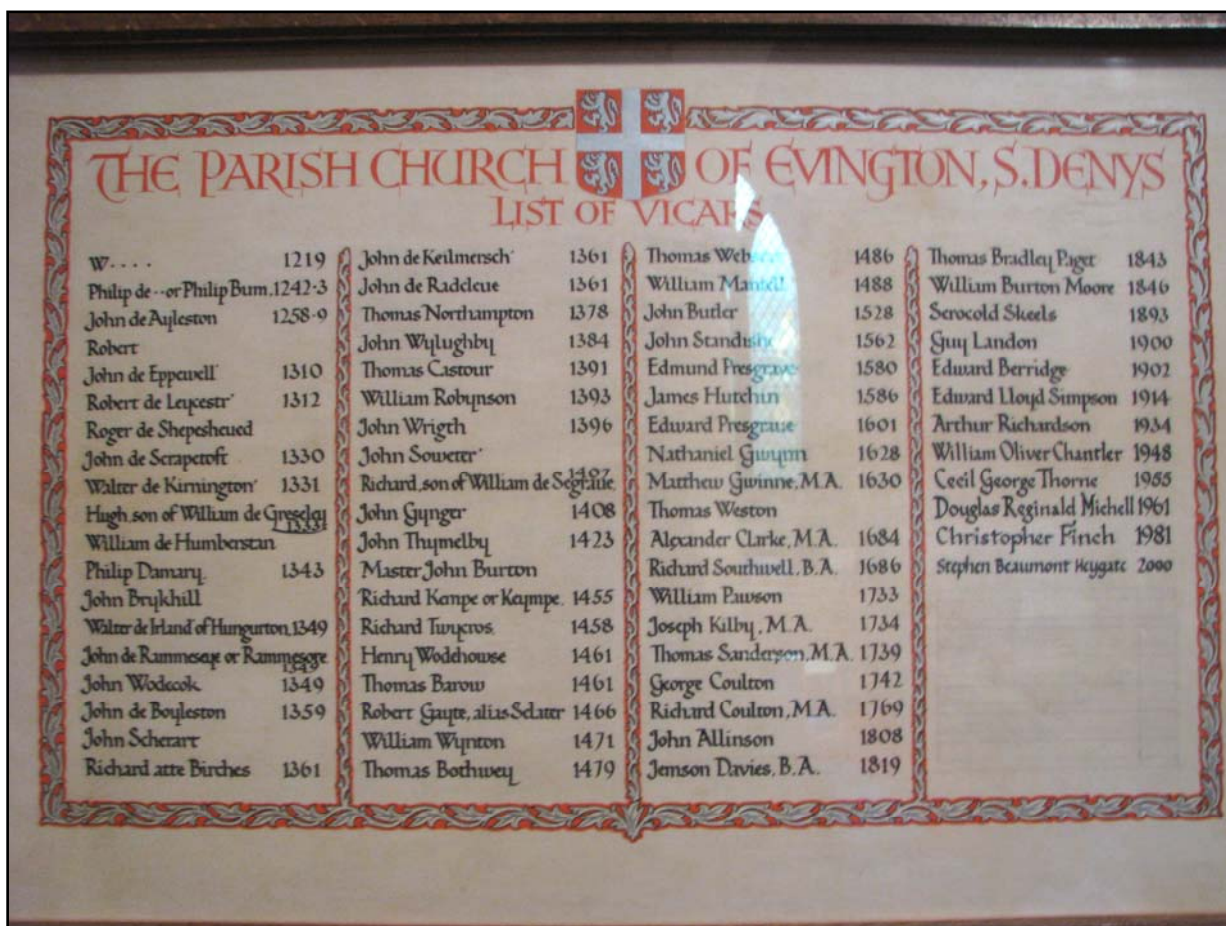 THE PARISH CHURCH OF EVINGTON, S. DENYS
LIST OF VICARS
W.... 1219
Philip de --or Philip Burn. 1242-3
John de Ayleston 1258-9
Robert
John de Eppewell' 1310
Robert de Leycestr' 1312
Roger de Shepesheued
John de Scraptoft 1330
Walter de Kirnington' 1331
Hugh, son of William de Greseley 1333
William de Humberstan
Philip Damary. 1343
John Brykhill
Walter de Irland' of Hungurton, 1349
John de Rammeseye or Rammesore 1349
John Wodecok 1349
John de Boyleston 1359
John Scherart
Richard atte Birches 1361
John de Keilmersch' 1361
John de Radcleue 1361
Thomas Northampton 1378
John Wylughby 1384
Thomas Castour 1391
William Robynson 1393
John Wrigth 1396
John Soweter'
Richard, son of William de Segraue, 1407
John Gynger 1408
John Thymelby 1423
Master John Burton
Richard Kempe or Keympe. 1455
Richard Twycros. 1458
Henry Wodehowse 1461
Thomas Barow 1461
Robert Gayte, alias Sclater 1466
William Wynton 1471
Thomas Bothwey 1479
Thomas 1486
William Mantell 1488
John Butler 1528
John Standishe 1562
Edmund Presgrave 1580
James Hutchin 1586
Edward Presgraue 1601
Nathaniel Gwynn 1628
Matthew Gwinne, M.A. 1630
Thomas Weston
Alexander Clarke, M.A. 1684
Richard Southwell, B.A. 1686
William Pawson 1733
Joseph Kilby, M.A. 1734
Thomas Sanderson, M.A. 1739
George Coulton 1742
Richard Coulton, M.A. 1769
John Allinson 1808
Jemson Davies, B.A. 1819
Thomas Bradley Paget 1843
William Burton Moore 1846
Serocold Skeels 1893
Guy Landon 1900
Edward Berridge 1902
Edward Lloyd Simpson 1914
Arthur Richardson 1934
William Oliver Chantler 1948
Cecil George Thorne 1955
Douglas Reginald Michell 1961
Christopher Finch 1981
Stephen Beaumont Heygate 2000